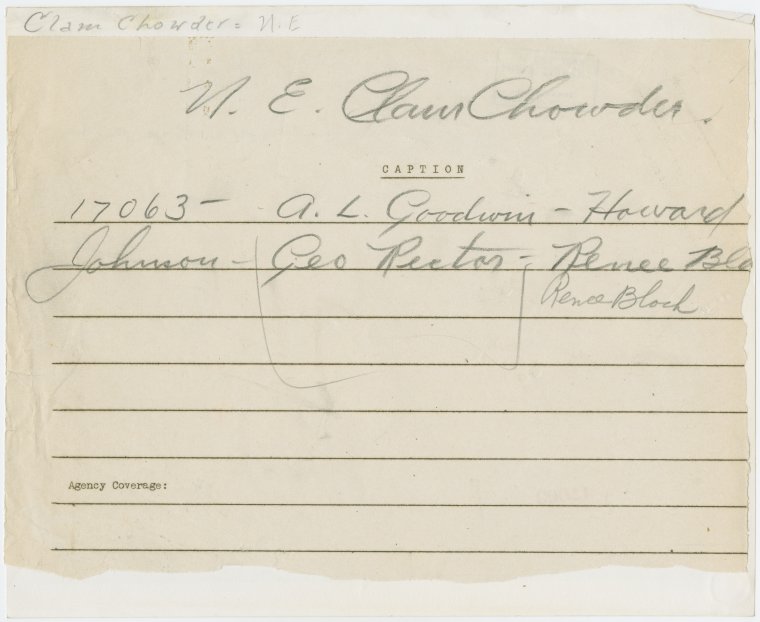 Clam Chowder - N.E
N. E. Clam Chowder.
CAPTION
17063 - A. L. Goodwin - Howard
Johnson - Geo Rector - Renee Blo
Renee Bloch
Agency Coverage: